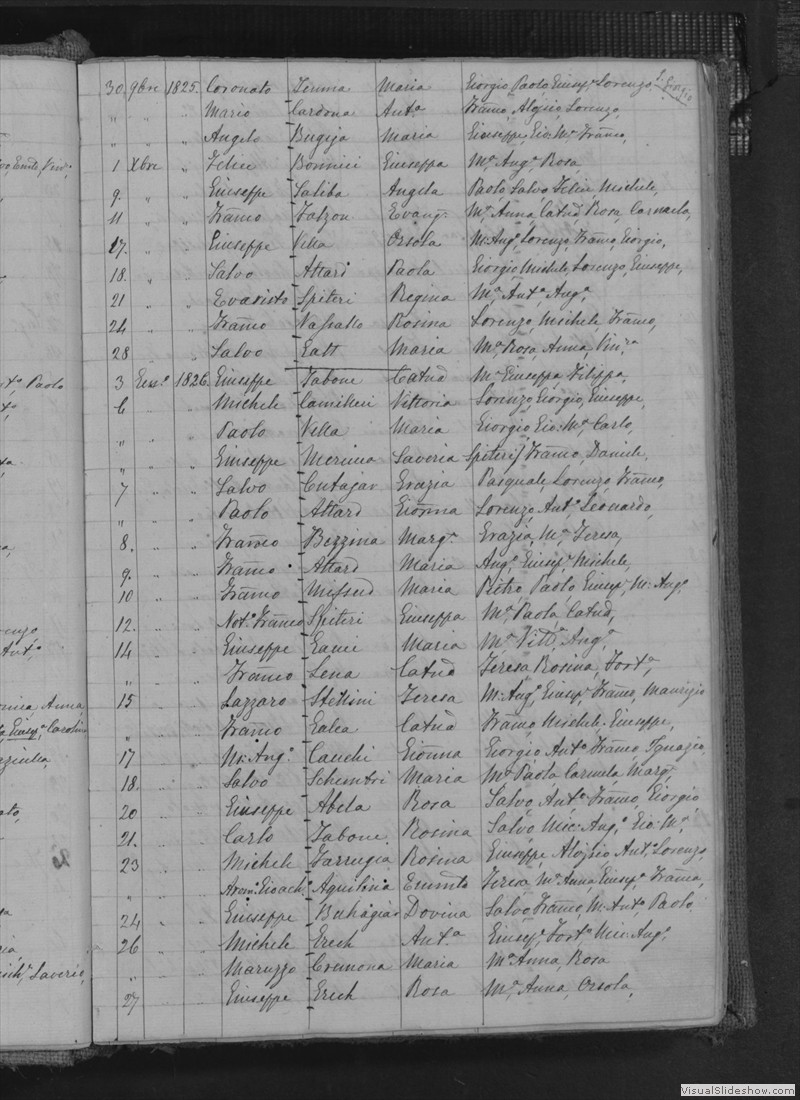 30 9bre 1825 Coronato Zimma Maria Giorgio Paolo, Giusep.e Lorenzo, S. Giorgio
" " " Mario Cardona Ant.a Fran͠co, Aloisio, Lorenzo,
" " " Angelo Bugeja Maria Giuseppe, Gio: M.a Fran͠co,
1 Xbre " Felice Bonnici Giuseppa M.a Ang.a Rosa
9. " " Giuseppe Saliba Angela Paolo, Salvo, Felice Michele,
11 " " Fran͠co Falzon Evang.a M.a Anna, Catnā Rosa, Carmela,
17. " " Giuseppe Vella Orsola M: Ang.o Lorenzo, Fran͠co, Giorgio,
18. " " Salvo Attard Paola Giorgio, Michele, Lorenzo, Giuseppe,
21 " " Evaristo Spiteri Regina M.a Ant.a Ang.a
24 " " Fran͠co Vassallo Rosina Lorenzo, Michele, Fran͠co,
28 " " Salvo Gatt Maria M.a Rosa, Anna, Vin.za
3 Genn.o 1826. Giuseppe Zabone Catnā M.a Giuseppa, Filippa,
6 " " Michele Camilleri Vittoria Lorenzo, Giorgio, Giuseppe,
" " " Paolo Vella Maria Giorgio Gio: M.a Carlo,
" " " Giuseppe Mercieca Saveria Spiteri] Fran͠co, Daniele,
7 " " Salvo Cutajar Grazia Pasquale, Lorenzo, Fran͠co,
" " " Paolo Attard Gionna Lorenzo, Ant.o Leonardo,
8. " " Fran͠co Bezzina Marg.a Grazia, M.a Teresa,
9. " " Fran͠co Attard Maria Ang.o Giusep.e Michele,
10 " " Fran͠co Mifsud Maria Pietro, Paolo, Giusep.e, M: Ang.o
12. " " Not.o Fran͠co Spiteri Giuseppa M.a Paola, Catnā,
14 " " Giuseppe Gauci Maria M.a Vitt.a Ang.a
" " " Franco Sena Catnā Teresa, Rosina, Fort.a
15 " " Lazzaro Stellini Teresa M: Ang.o Giusep.e Fran͠co, Maurizio
" " " Fran͠co Galea Catnā Fran͠co, Michele, Giuseppe,
17 " " M: Ang.o Cauchi Gionna Giorgio, Ant.o Fran͠co, Ignazio,
18. " " Salvo Schembri Maria M.a Paola, Carmela, Marg.a
20 " " Giuseppe Abela Rosa Salvo, Ant.o Fran͠co, Giorgio
21. " " Carlo Zabone Rosina Salvo, Mic: Ang.o Gio: M.a
23 " " Michele Farrugia Rosina Giuseppe, Aloisio, Ant.o Lorenzo,
" " " Gioach: Aquilina Teresa, M.a Anna, Giusep.a Fran͠ca,
24 " " Giuseppe Buhagiar Dovina Salvo, Fran͠co, M: Ant.o Paolo,
26 " " Michele Grech Ant.a Giusep.e Fort.o Mic: Ang.o
" " " Maruzzo Cremona Maria M.a Anna, Rosa
27 " " Giuseppe Grech Rosa M.a Anna, Orsola,
VisualSlideshow.com